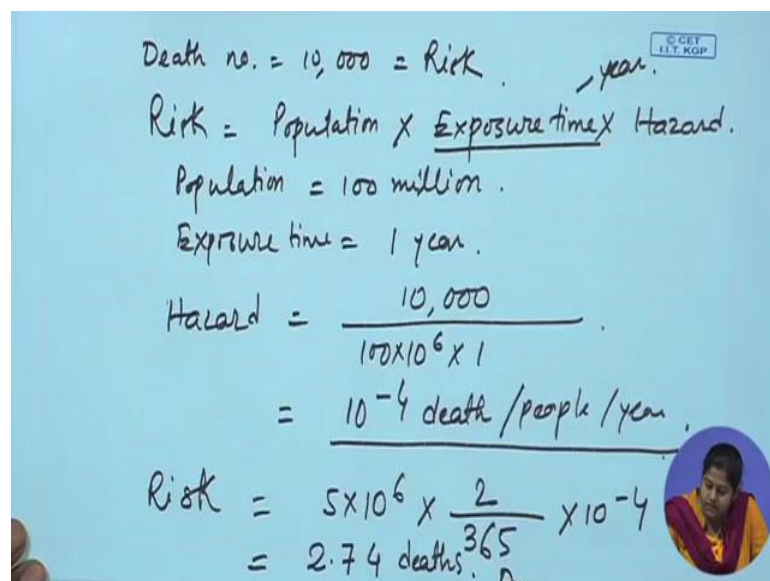 © CET
I.I.T. KGP
Death no. = 10,000 = Risk.
, year.
Risk = Population X Exposure time X Hazard.
Population = 100 million.
Exposure time = 1 year.
Hazard = 10,000 / 100x10⁶ x 1 .
= 10⁻⁴ death /people / year.
Risk = 5x10⁶ x 2/365 x 10⁻⁴
= 2.74 deaths.